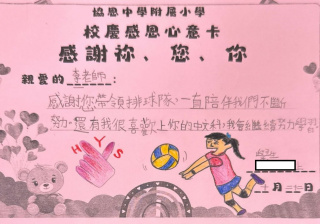 協恩中學附屬小學
校慶感恩心意卡
感謝祢、您、你
親愛的李老師：
感謝您帶領排球隊，一直陪伴我們不斷
努，還有我很喜歡上你的中文科，我會繼續努力學習的
H Y S
月 日